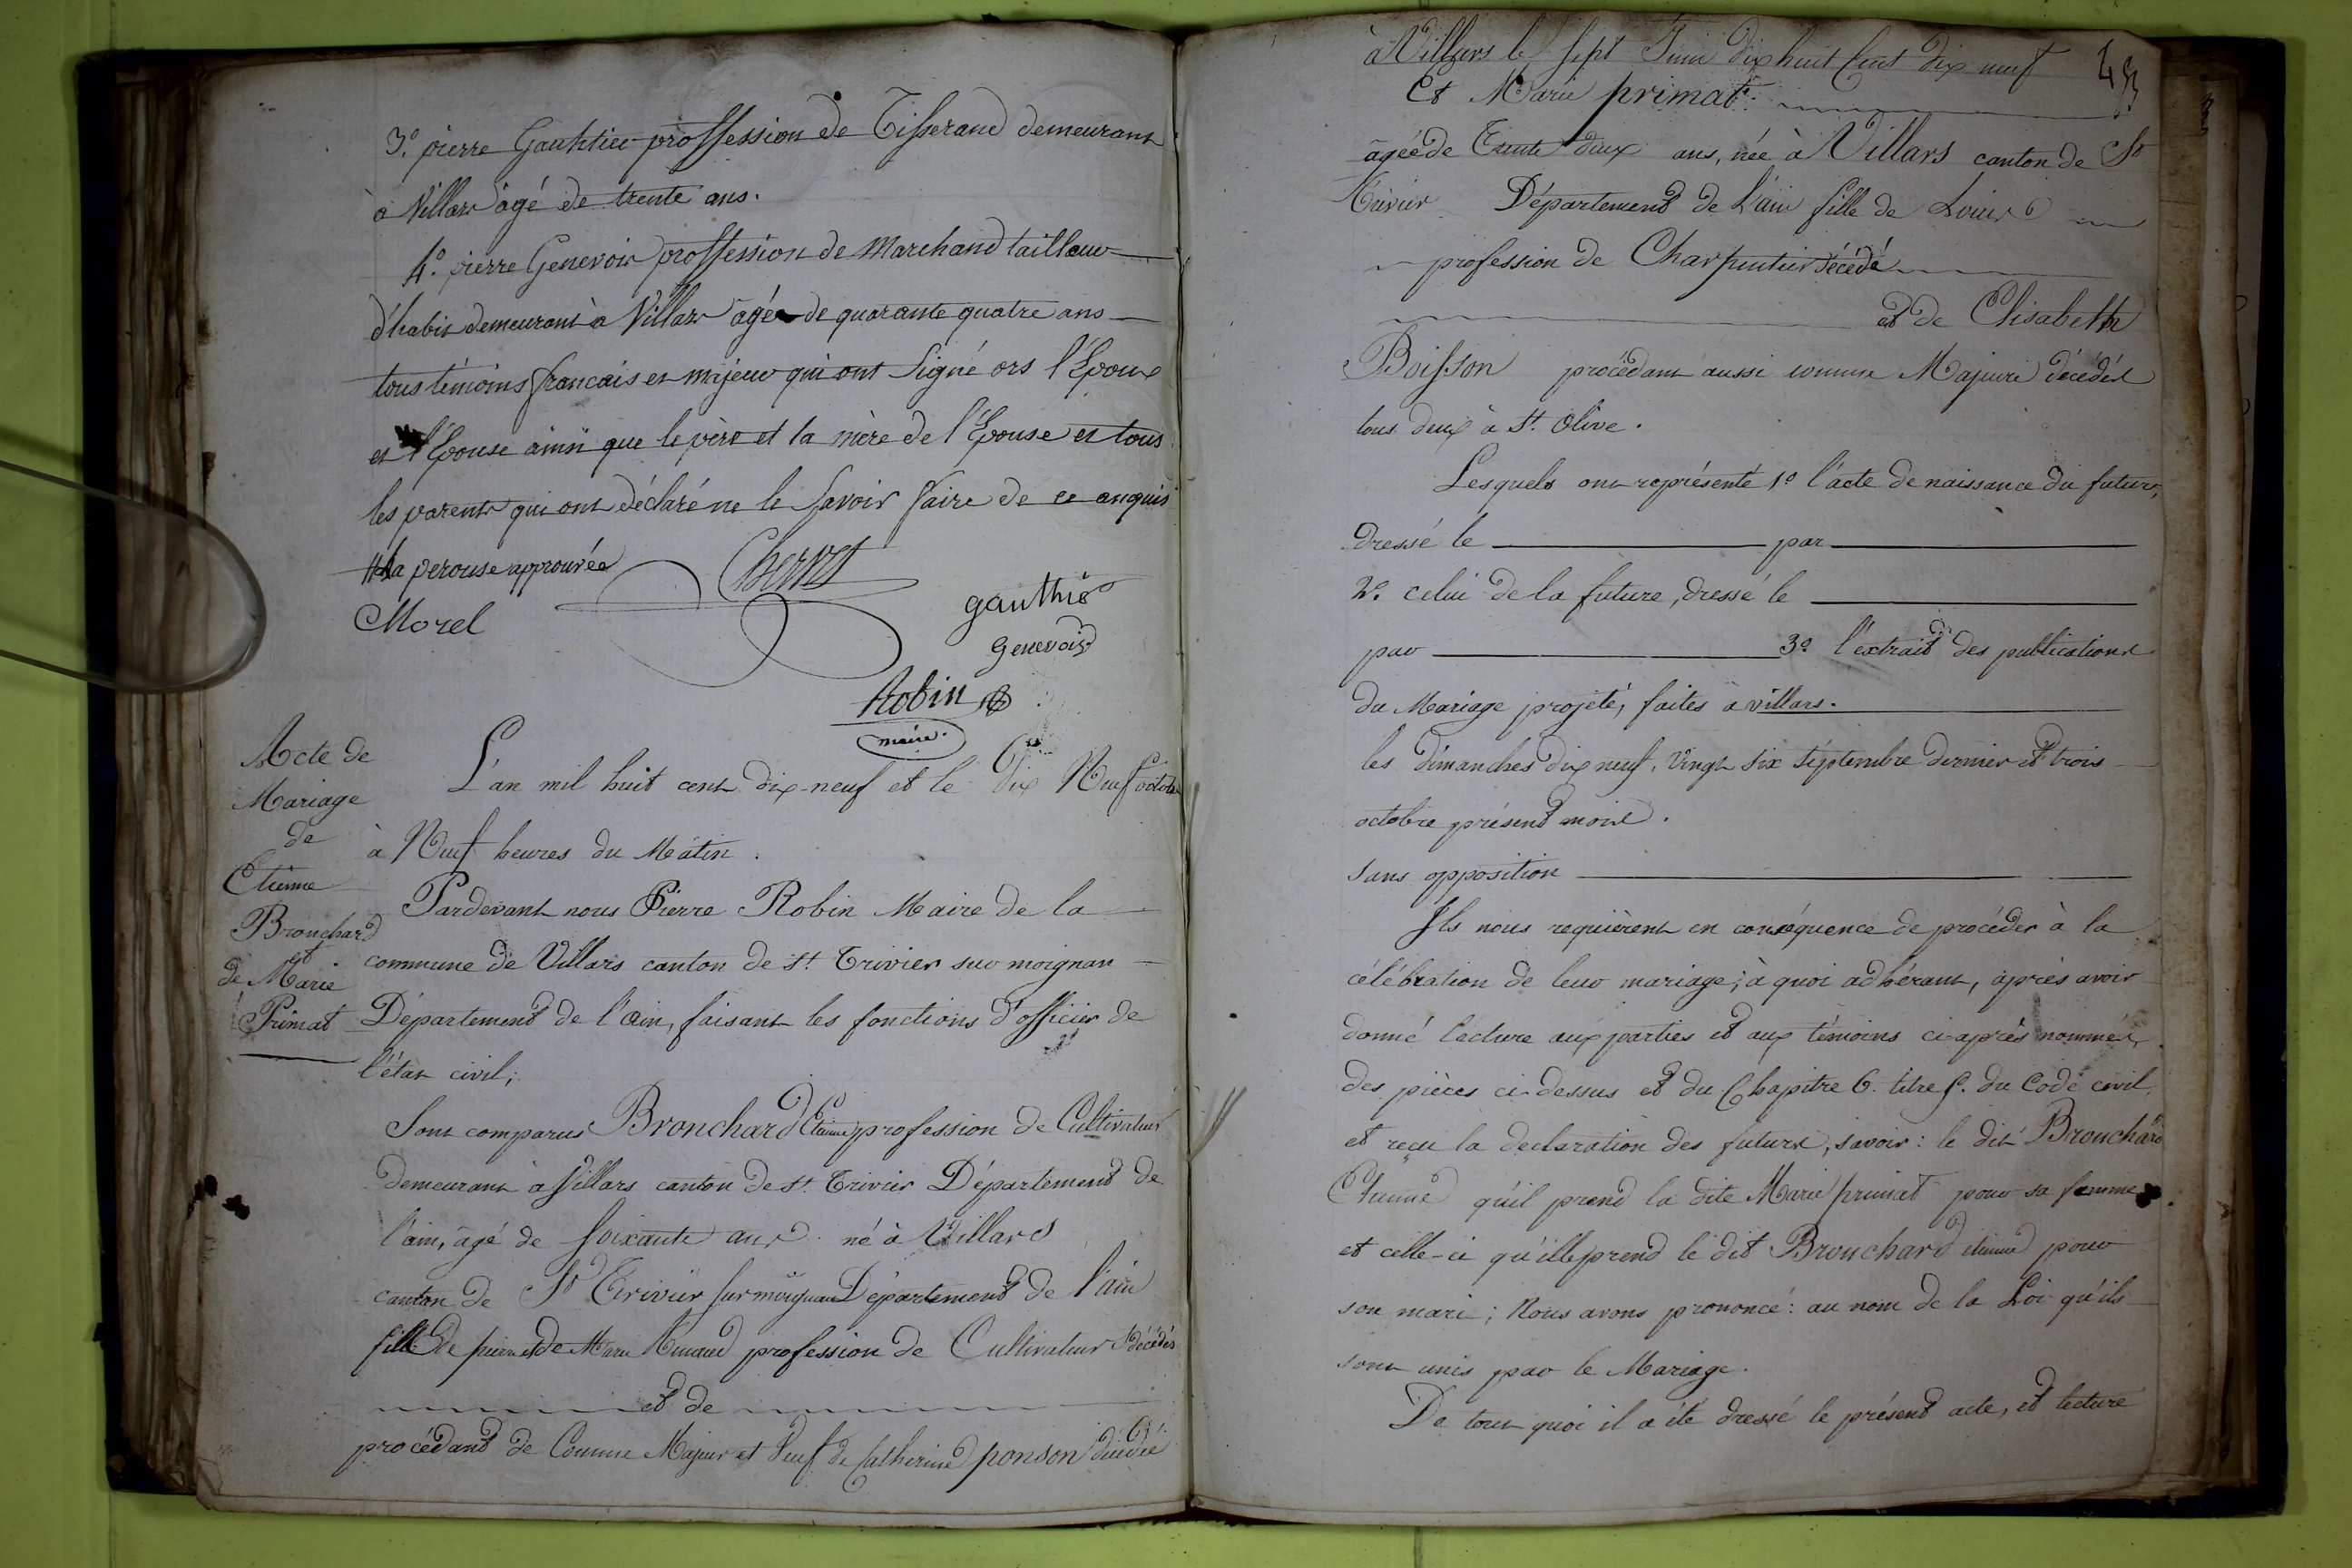 3º. pierre Gauhtier proffession de Tisserand demeurant
à Villars âgé de trente ans.
4º. pierre Genevois proffession de Marchand tailleur
d'habis demeurant à Villars âgé de quarante quatre ans
tous témoins francais et majeur qui ont Signé ors l'Epoux
et l'Epouse ainsi que le père et la mère de l'Epouse et tous
les parents qui ont déclaré ne le Savoir faire de ce enquis
approuvée
Morel
gauthié
Genevois
Robin
maire.
Acte de
Mariage
de
Etienne
Bronchard
et
de Marie
Primat
L'an mil huit cent dix-neuf et le Dix Neuf octobre
à Neuf heures du Matin.
Pardevant nous Pierre Robin Maire de la
commune de Villars canton de St. Trivier sur moignan
Département de l'ain, faisant les fonctions d'officier de
l'état civil;
Sont comparus Bronchard Etienne profession de Cultivateur
demeurant à Villars canton de St. Trivier Département de
l'ain, âgé de soixante ans né à Villars
canton de St Trivier sur moignan Département de l'ain
fils de pierre et de Marie profession de Cultivateur décédés
et de
procédant de Comme Majeur et Veuf de Catherine ponson décédée
à Villars le sept Juin dix huit Cent dix neuf
Et Marie primat
âgée de Trente deux ans, née à Villars canton de St
Trivier Département de L'ain fille de Louis
profession de Charpentier décédé
et de Elisabeth
Boisson procédant aussi comme Majeure décédés
tous deux à St. Olive.
Lesquels ont représenté 1º l'acte de naissance du futur,
dressé le par
2º. celui de la future, dressé le
par 3º l'extrait des publications
du Mariage projeté, faites à villars.
les dimanches dix neuf, vingt six septembre dernier et trois
octobre présent mois.
sans opposition
Ils nous requièrent en conséquence de procéder à la
célébration de leur mariage; à quoi adhérant, après avoir
donné lecture aux parties et aux témoins ci-après nommés,
des pièces ci-dessus et du Chapitre 6. titre 5. du Code civil,
et reçu la declaration des futurs, savoir: le dit Bronchard
Etienne qu'il prend la dite Marie primat pour sa femme
et celle-ci qu'elle prend le dit Bronchard etienne pour
son mari; Nous avons prononcé: au nom de la Loi qu'ils
sont unis par le Mariage.
De tout quoi il a été dressé le présent acte, et lecture